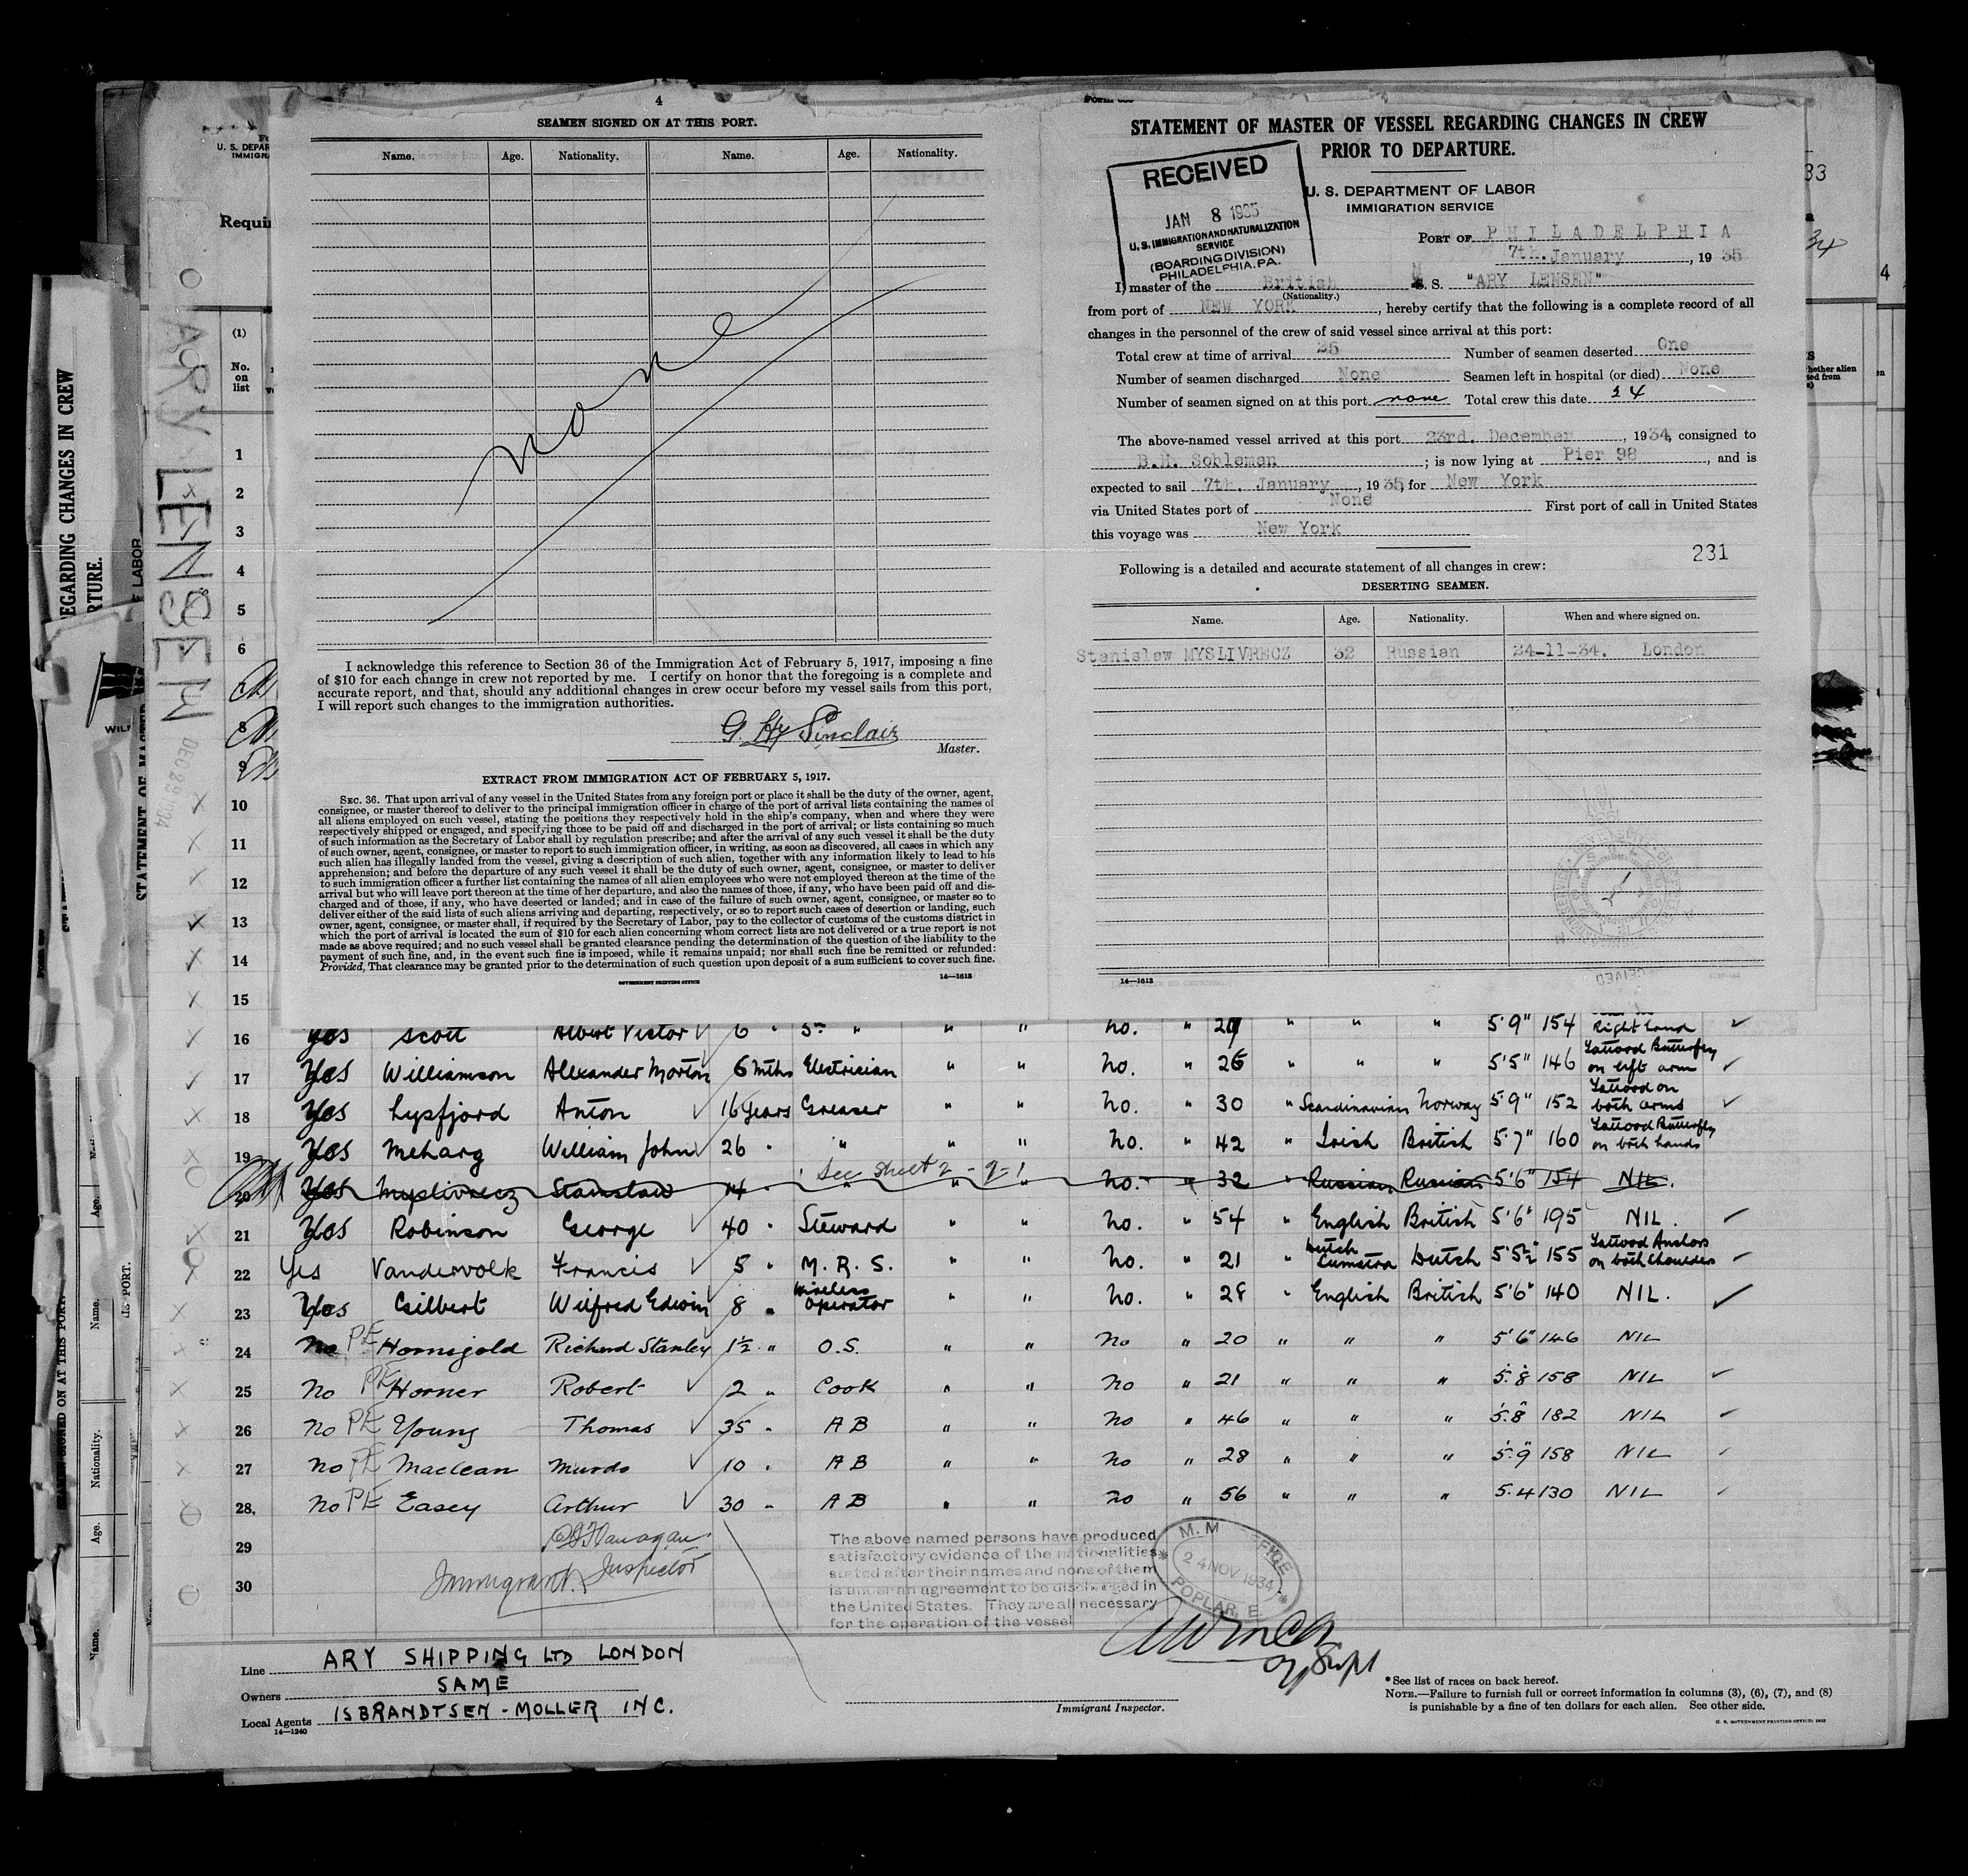 4
SEAMEN SIGNED ON AT THIS PORT.
Name. Age. Nationality. Name. Age. Nationality.
None
I acknowledge this reference to Section 36 of the Immigration Act of February 5, 1917, imposing a fine
of $10 for each change in crew not reported by me. I certify on honor that the foregoing is a complete and
accurate report, and that, should any additional changes in crew occur before my vessel sails from this port,
I will report such changes to the immigration authorities.
G. Hy Sinclair
Master.
EXTRACT FROM IMMIGRATION ACT OF FEBRUARY 5, 1917.
SEC. 36. That upon arrival of any vessel in the United States from any foreign port or place it shall be the duty of the owner, agent,
consignee, or master thereof to deliver to the principal immigration officer in charge of the port of arrival lists containing the names of
all aliens employed on such vessel, stating the positions they respectively hold in the ship's company, when and where they were
respectively shipped or engaged, and specifying those to be paid off and discharged in the port of arrival; or lists containing so much
of such information as the Secretary of Labor shall by regulation prescribe; and after the arrival of any such vessel it shall be the duty
of such owner, agent, consignee, or master to report to such immigration officer, in writing, as soon as discovered, all cases in which any
such alien has illegally landed from the vessel, giving a description of such alien, together with any information likely to lead to his
apprehension; and before the departure of any such vessel it shall be the duty of such owner, agent, consignee, or master to deliver
to such immigration officer a further list containing the names of all alien employees who were not employed thereon at the time of the
arrival but who will leave port thereon at the time of her departure, and also the names of those, if any, who have been paid off and dis-
charged and of those, if any, who have deserted or landed; and in case of the failure of such owner, agent, consignee, or master so to
deliver either of the said lists of such aliens arriving and departing, respectively, or so to report such cases of desertion or landing, such
owner, agent, consignee, or master shall, if required by the Secretary of Labor, pay to the collector of customs of the customs district in
which the port of arrival is located the sum of $10 for each alien concerning whom correct lists are not delivered or a true report is not
made as above required; and no such vessel shall be granted clearance pending the determination of the question of the liability to the
payment of such fine, and, in the event such fine is imposed, while it remains unpaid; nor shall such fine be remitted or refunded:
Provided, That clearance may be granted prior to the determination of such question upon deposit of a sum sufficient to cover such fine.
GOVERNMENT PRINTING OFFICE 14—1613
STATEMENT OF MASTER OF VESSEL REGARDING CHANGES IN CREW
PRIOR TO DEPARTURE.
RECEIVED
JAN 8 1935
U. S. IMMIGRATION AND NATURALIZATION
SERVICE
(BOARDING DIVISION)
PHILADELPHIA, PA.
U. S. DEPARTMENT OF LABOR
IMMIGRATION SERVICE
PORT OF PHILADELPHIA
7th. January, 1935
I, master of the British M S. "ARY LENSEN"
(Nationality.)
from port of NEW YORK, hereby certify that the following is a complete record of all
changes in the personnel of the crew of said vessel since arrival at this port:
Total crew at time of arrival 25 Number of seamen deserted One
Number of seamen discharged None Seamen left in hospital (or died) None
Number of seamen signed on at this port none Total crew this date 24
The above-named vessel arrived at this port 23rd. December, 1934, consigned to
B.H. Sobleman; is now lying at Pier 98, and is
expected to sail 7th. January, 1935, for New York
via United States port of None First port of call in United States
this voyage was New York
231
Following is a detailed and accurate statement of all changes in crew:
DESERTING SEAMEN.
Name. Age. Nationality. When and where signed on.
Stanislaw MYSLIVRECZ 32 Russian 24-11-34. London
14—1613
ARY LENSEN
DEC 23 1934
U. S. DEPAR
IMMIGRA
Requir
(1)
No. on list
1
2
3
4
5
6
8
9
10
11
12
13
14
15
16 Yes Scott Albert Victor 6 " 3rd " " " No. " 29 " " " 5'9" 154 Right hand
17 Yes Williamson Alexander Morton 6 Mths Electrician " " No. " 26 " " " 5'5" 146 Tattooed Butterfly on left arm
18 Yes Lysfjord Anton 16 Years Greaser " " No. " 30 " Scandinavian Norway 5'9" 152 Tattooed on both arms
19 Yes Meharg William John 26 " " " " No. " 42 " Irish British 5'7" 160 Tattooed Butterfly on both hands
See sheet 2
20 Yes Myslivrecz Stanislaw 14 " " " " No. " 32 " Russian Russian 5'6" 154 NIL.
21 Yes Robinson George 40 " Steward " " No. " 54 " English British 5'6" 195 NIL.
22 Yes Vandervolk Francis 5 " M.R.S. " " No. " 21 " Dutch Sumatra Dutch 5'5½" 155 Tattooed Anchors on both shoulders
23 Yes Gilbert Wilfred Edwin 8 " Wireless Operator " " No. " 28 " English British 5'6" 140 NIL.
24 No PE Hornigold Richard Stanley 1½ " O.S. " " No " 20 " " " 5'6" 146 NIL
25 No PE Horner Robert 2 " Cook " " No " 21 " " " 5.8 158 NIL
26 No PE Young Thomas 35 " AB " " No " 46 " " " 5.8 182 NIL
27 No PE Maclean Murdo 10 " AB " " No " 28 " " " 5.9 158 NIL
28, No PE Easey Arthur 30 " AB " " No " 56 " " " 5.4 130 NIL
29
30
Flanagan
Immigrant Inspector
The above named persons have produced
satisfactory evidence of the nationalities
stated after their names and none of them
is under an agreement to be discharged in
the United States. They are all necessary
for the operation of the vessel
24 NOV 1934
POPLAR, E.
Line ARY SHIPPING LTD LONDON
Owners SAME
Local Agents ISBRANDTSEN-MOLLER INC.
14—1240
Immigrant Inspector.
*See list of races on back hereof.
NOTE.—Failure to furnish full or correct information in columns (3), (6), (7), and (8)
is punishable by a fine of ten dollars for each alien. See other side.
U. S. GOVERNMENT PRINTING OFFICE: 1932
EGARDING CHANGES IN CREW
RTURE.